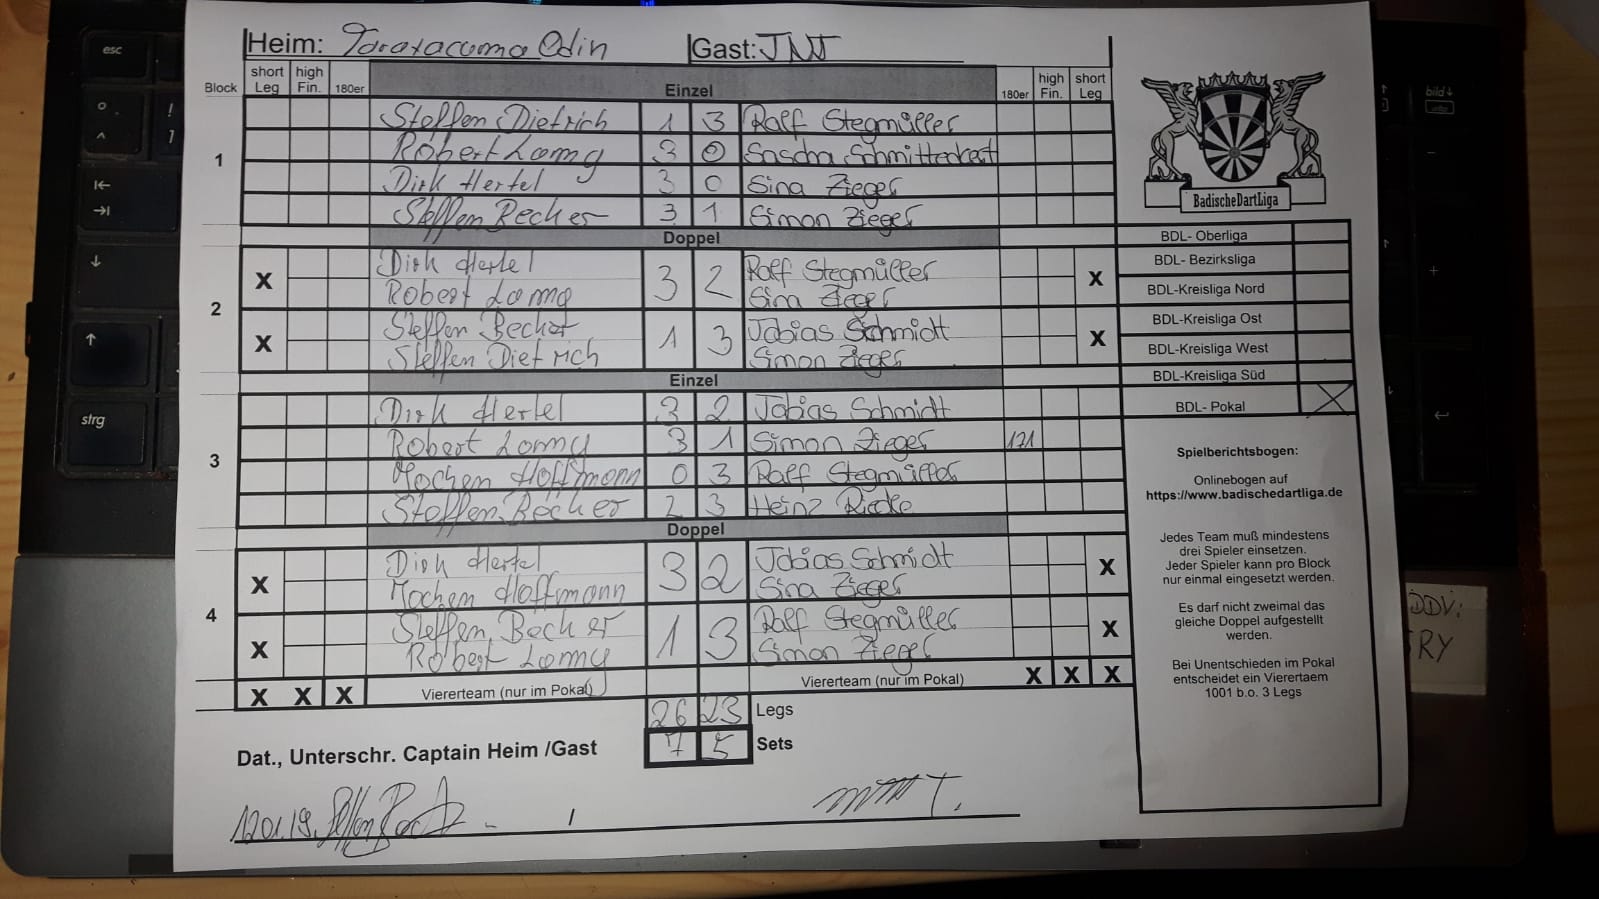 Heim: Taraxacuma Odin Gast: JNT
Block short Leg high Fin. 180er Einzel 180er high Fin. short Leg
1
Steffen Dietrich 1 3 Ralf Stegmüller
Robert Lorny 3 0 Sascha Schmitteckert
Dirk Hertel 3 0 Sina Zieger
Steffen Becher 3 1 Simon Zieger
Doppel
2
X Dirk Hertel 3 2 Ralf Stegmüller X
Robert Lorny Sina Zieger
X Steffen Becher 1 3 Tobias Schmidt X
Steffen Dietrich Simon Zieger
Einzel
3
Dirk Hertel 3 2 Tobias Schmidt
Robert Lorny 3 1 Simon Zieger 131
Jochen Hoffmann 0 3 Ralf Stegmüller
Steffen Becher 2 3 Heinz
Doppel
4
X Dirk Hertel 3 2 Tobias Schmidt X
Jochen Hoffmann Sina Zieger
X Steffen Becher 1 3 Ralf Stegmüller X
Robert Lorny Simon Zieger
X X X Viererteam (nur im Pokal) Viererteam (nur im Pokal) X X X
26 23 Legs
7 5 Sets
Dat., Unterschr. Captain Heim /Gast
12.01.19. /
BadischeDartLiga
BDL- Oberliga
BDL- Bezirksliga
BDL-Kreisliga Nord
BDL-Kreisliga Ost
BDL-Kreisliga West
BDL-Kreisliga Süd
BDL- Pokal X
Spielberichtsbogen:
Onlinebogen auf
https://www.badischedartliga.de
Jedes Team muß mindestens
drei Spieler einsetzen.
Jeder Spieler kann pro Block
nur einmal eingesetzt werden.
Es darf nicht zweimal das
gleiche Doppel aufgestellt
werden.
Bei Unentschieden im Pokal
entscheidet ein Vierertaem
1001 b.o. 3 Legs
esc
strg
bild↓
DDV:
RY